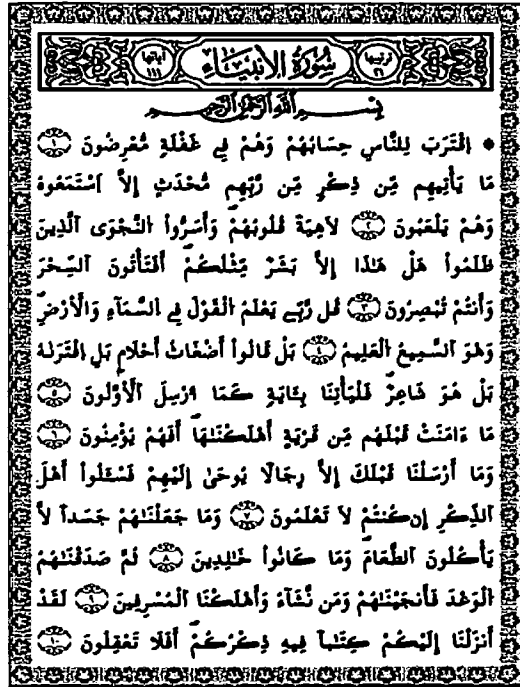 ترتيبها ٢١ سُورَةُ الأَنبِيَاءِ آياتها ١١١
بِسْمِ اللَّهِ الرَّحْمَٰنِ الرَّحِيمِ
* اِقْتَرَبَ لِلنَّاسِ حِسَابُهُمْ وَهُمْ فِے غَفْلَةٍ مُّعْرِضُونَ ١
مَا يَأْتِيهِم مِّن ذِكْرٍ مِّن رَّبِّهِم مُّحْدَثٍ اِلَّا اَسْتَمَعُوهُ
وَهُمْ يَلْعَبُونَ ٢ لَاهِيَةً قُلُوبُهُمْ وَأَسَرُّواْ النَّجْوَى اَلَّذِينَ
ظَلَمُواْ هَلْ هَٰذَا إِلَّا بَشَرٌ مِّثْلُكُمْ أَفَتَأْتُونَ اَلسِّحْرَ
وَأَنتُمْ تُبْصِرُونَ ٣ قُل رَّبِّے يَعْلَمُ الْقَوْلَ فِے السَّمَآءِ وَالْأَرْضِ
وَهُوَ اَلسَّمِيعُ الْعَلِيمُ ٤ بَلْ قَالُواْ أَضْغَٰثُ أَحْلَٰمٍ بَلِ اِفْتَرَىٰهُ
بَلْ هُوَ شَاعِرٌ فَلْيَأْتِنَا بِـَٔايَةٍ كَمَا أُرْسِلَ اَلْأَوَّلُونَ ٥
مَا ءَامَنَتْ قَبْلَهُم مِّن قَرْيَةٍ أَهْلَكْنَٰهَا أَفَهُمْ يُؤْمِنُونَ ٦
وَمَا أَرْسَلْنَا قَبْلَكَ إِلَّا رِجَالًا يُوحَىٰ إِلَيْهِمْ فَسْـَٔلُواْ أَهْلَ
اَلذِّكْرِ إِن كُنتُمْ لَا تَعْلَمُونَ ٧ وَمَا جَعَلْنَٰهُمْ جَسَداً لَّا
يَأْكُلُونَ اَلطَّعَامَ وَمَا كَانُواْ خَٰلِدِينَ ٨ ثُمَّ صَدَقْنَٰهُمُ
الْوَعْدَ فَأَنجَيْنَٰهُمْ وَمَن نَّشَآءُ وَأَهْلَكْنَا الْمُسْرِفِينَ ٩ لَقَدْ
أَنزَلْنَا إِلَيْكُمْ كِتَٰباً فِيهِ ذِكْرُكُمْ أَفَلَا تَعْقِلُونَ ١٠